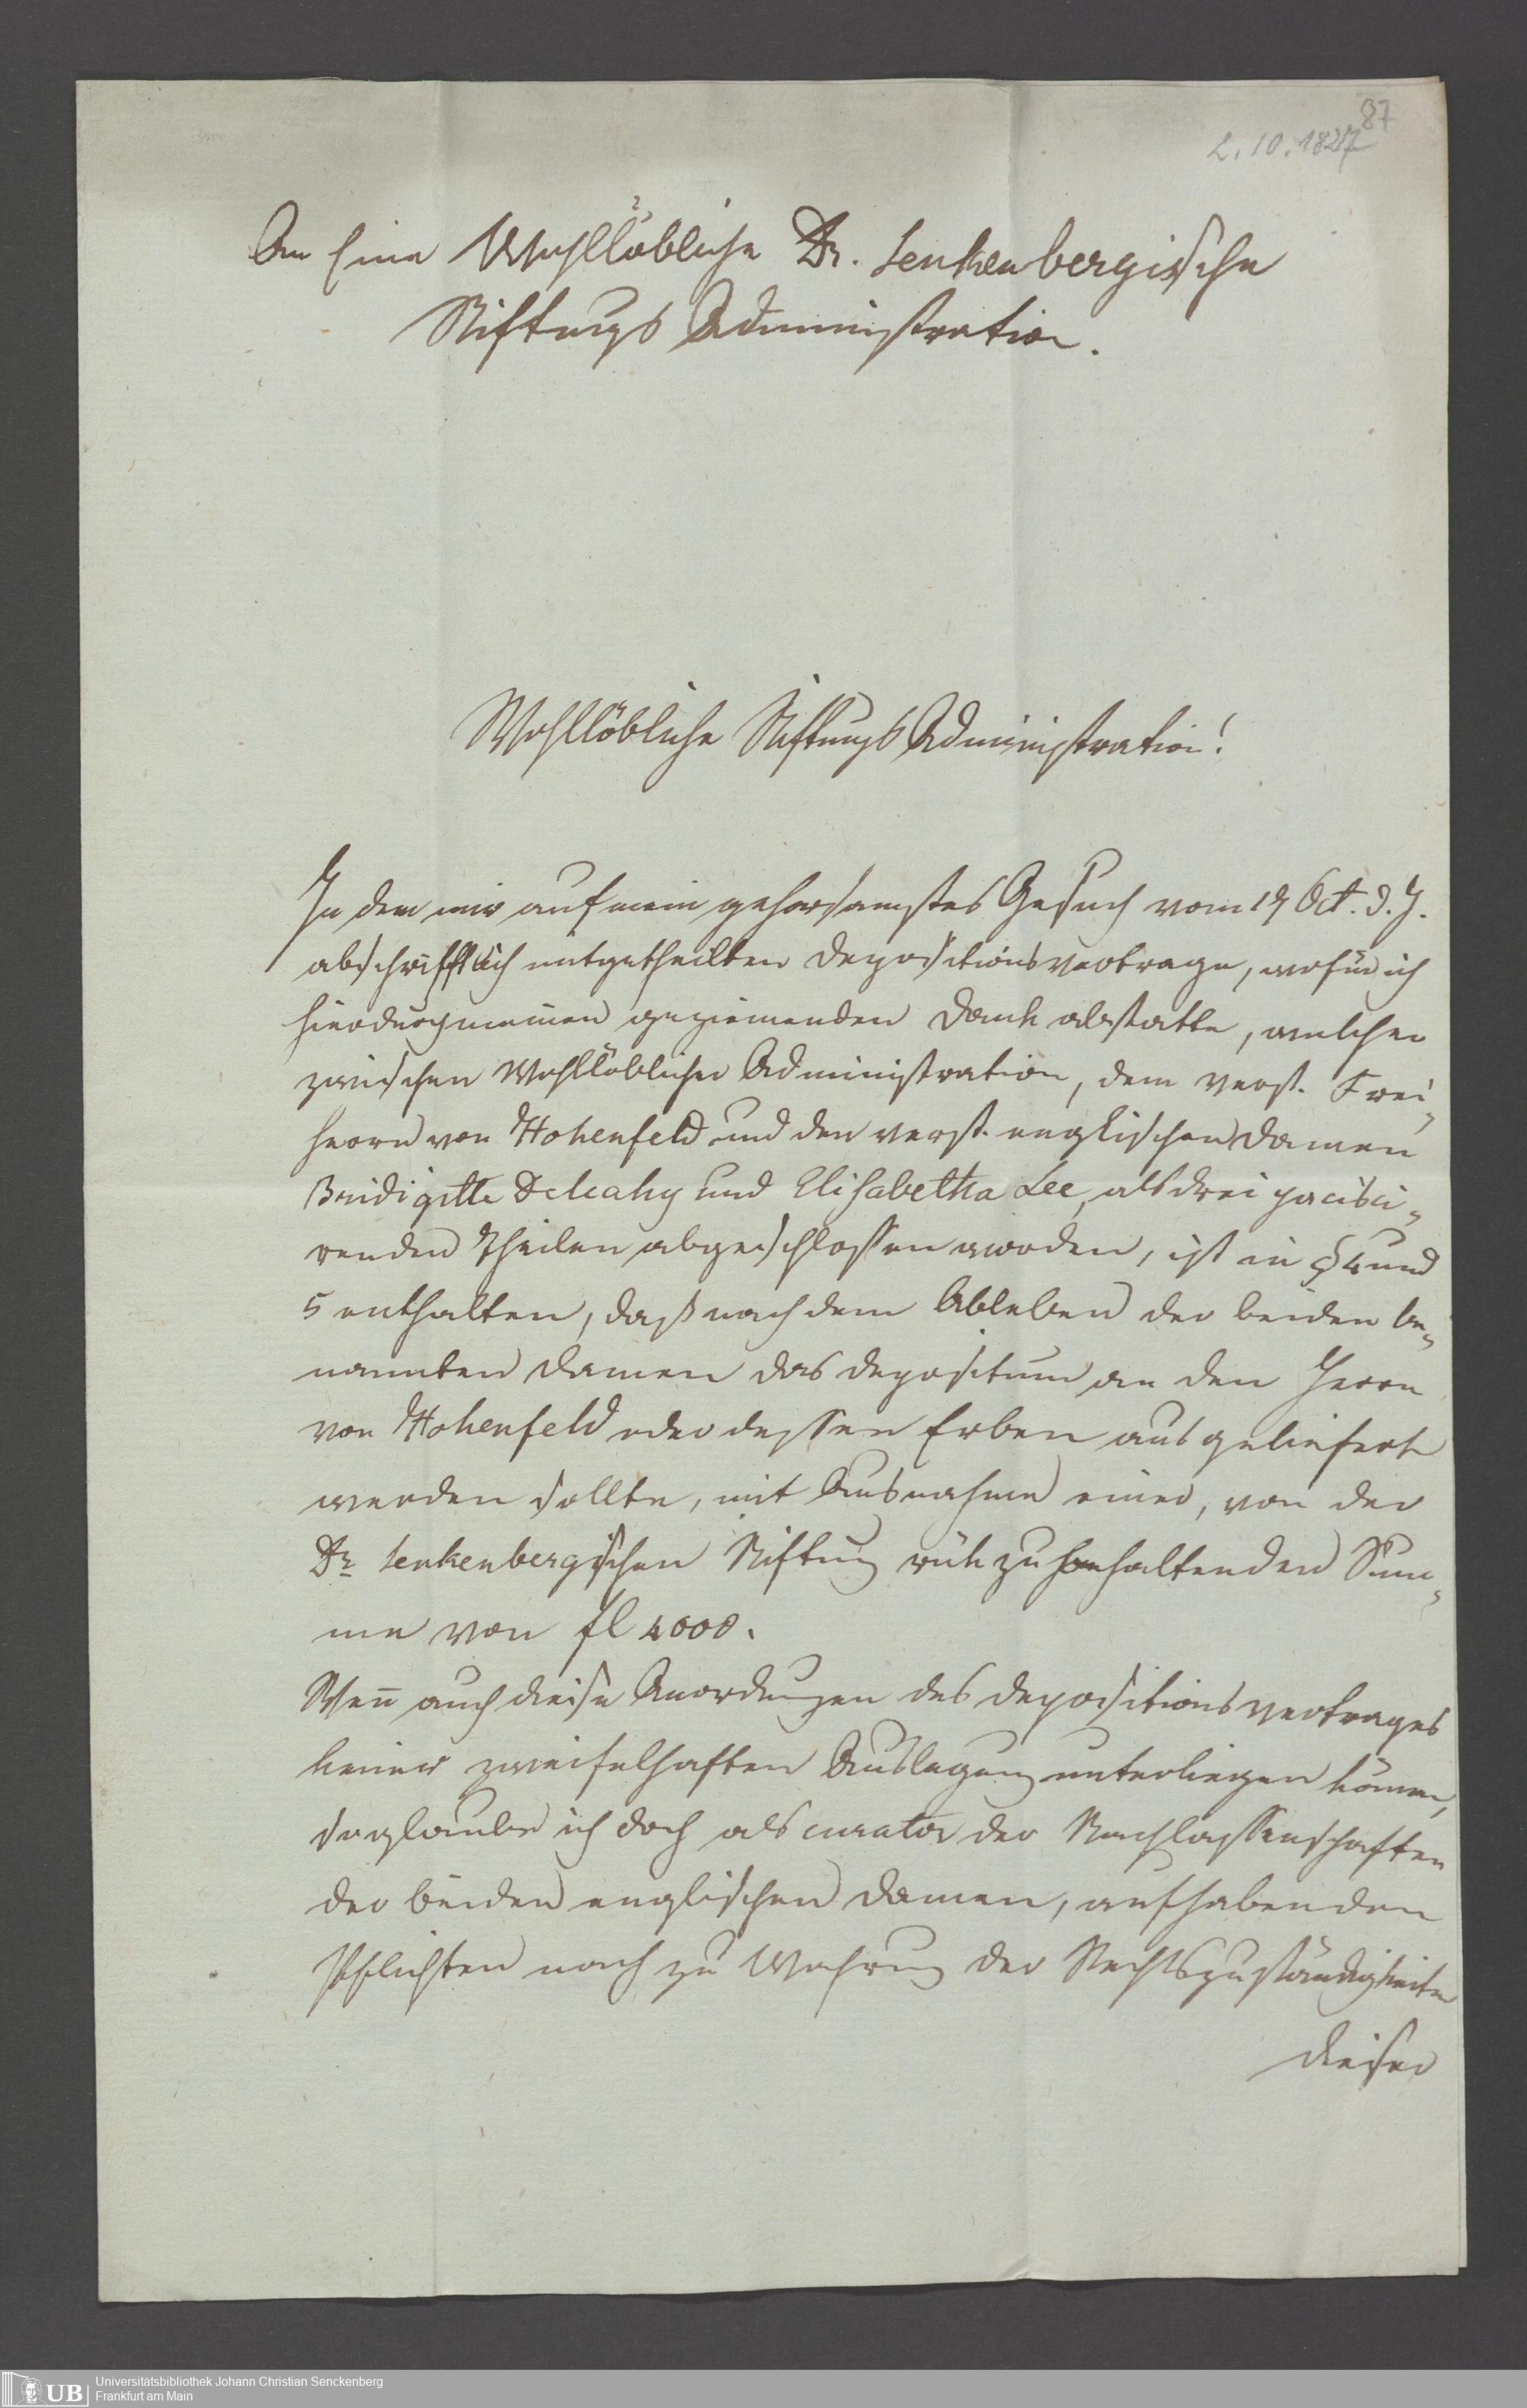 87
2.10.1827
An Eine Wohllöbliche Dr. Senkenbergische
Stiftungs Administration.
Wohllöbliche Stiftungs Administration!
In dem mir auf mein gehorsamstes Gesuch vom 19 Oct. d. J.
abschrifftlich mitgetheilten Depositionsvertrage, wofür ich
hierdurch meinen geziemenden Dank abstatte, welcher
zwischen Wohllöblicher Administration, dem verst. Frei-
herrn von Hohenfeld und den verst. englischen Damen
Bridigitte Deleahy und Elisabetha Lee, als drei pacisci-
renden Theilen abgeschlossen worden, ist in § 4 und
5 enthalten, daß nach dem Ableben der beiden be-
nannten Damen das Depositum an den Herrn
von Hohenfeld oder dessen Erben ausgeliefert
werden sollte, mit Ausnahme einer, von der
Dr. Senkenbergischen Stiftung rük zu haltenden Sum-
me von fl 4000.
Wenn auch diese Anordnungen des Depositionsvertrages
keiner zweifelhaften Auslegung unterliegen können,
so glaube ich doch als curator der Nachlassenschaften
der beiden englischen Damen, aufhabenden
Pflichten nach zu Wahrung der Rechtszuständigkeiten
dieser
UB
Universitätsbibliothek Johann Christian Senckenberg
Frankfurt am Main